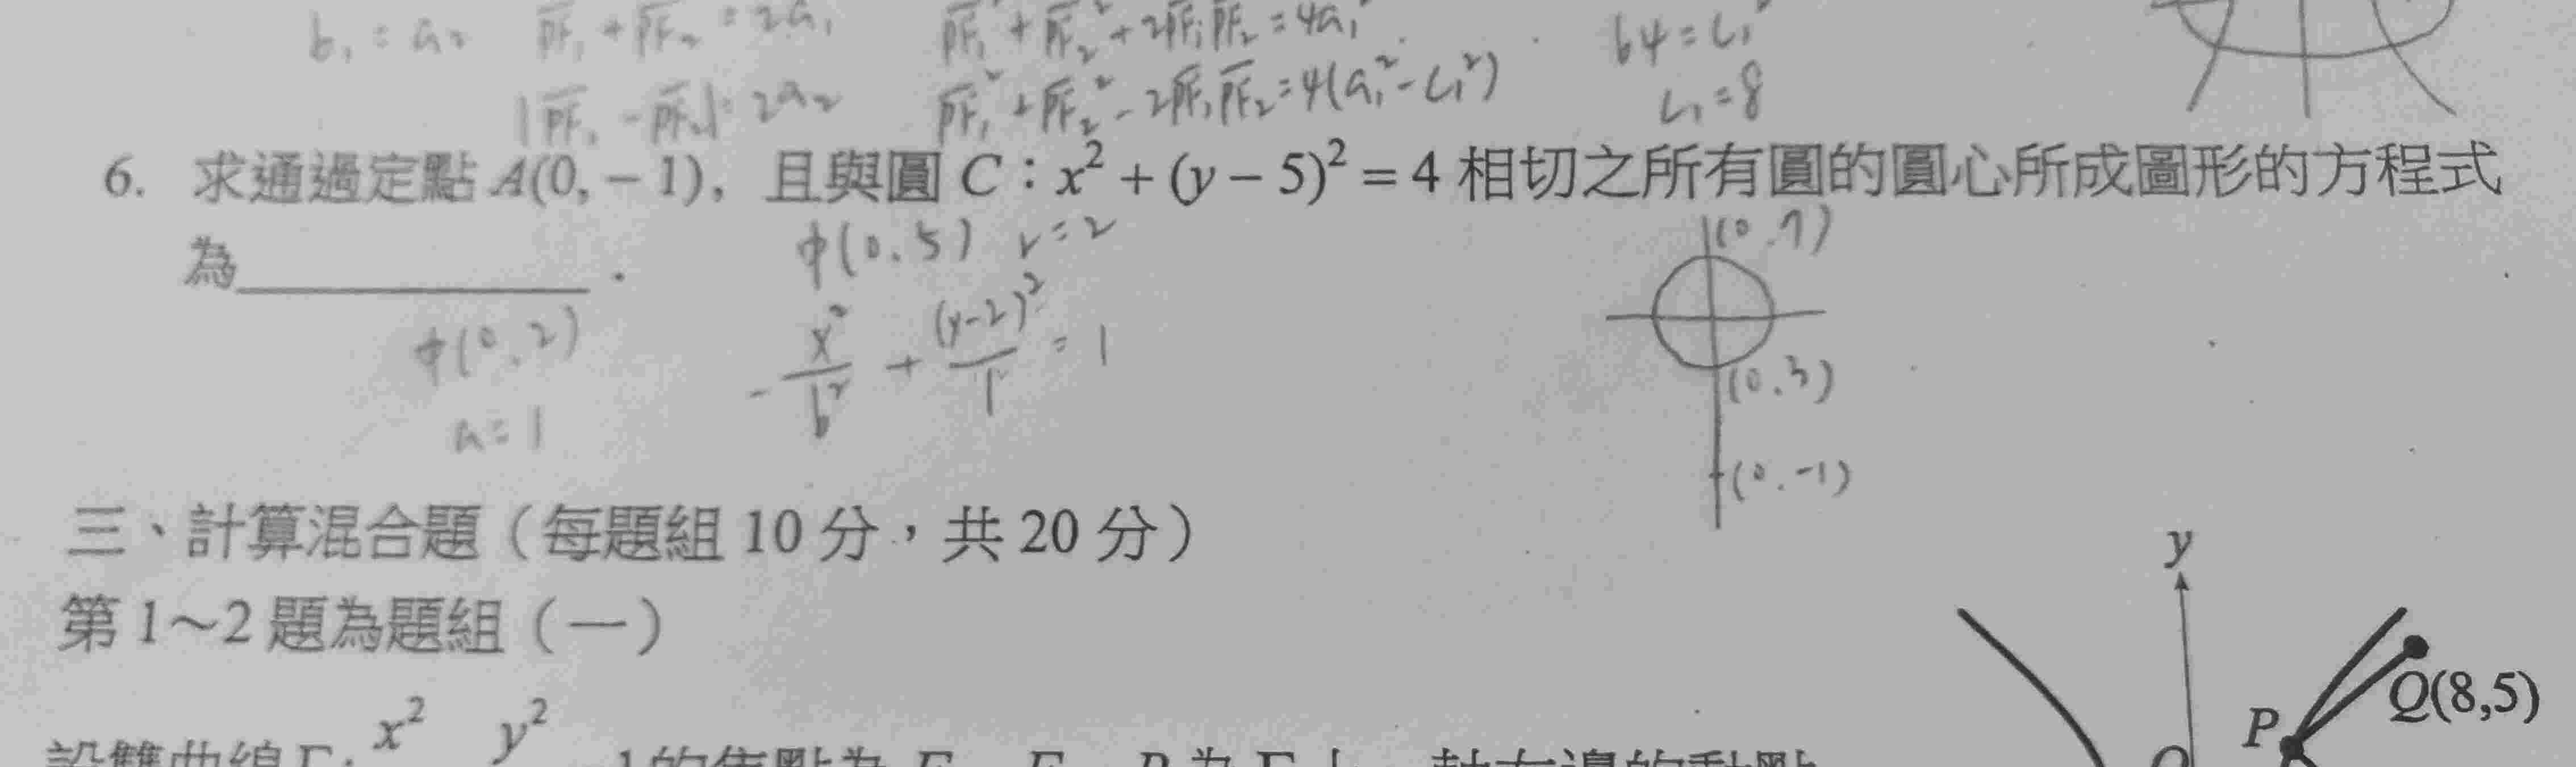 b₁ = a₂ PF₁ + PF₂ = 2a₁ PF₁² + PF₂² + 2PF₁PF₂ = 4a₁² 64 = c₁²
|PF₁ - PF₂| = 2a₂ PF₁² + PF₂² - 2PF₁PF₂ = 4(a₁² - c₁²) c₁ = 8
6. 求通過定點 A(0, − 1), 且與圓 C：x² + (y − 5)² = 4 相切之所有圓的圓心所成圖形的方程式
為____________.
中(0,5) r = 2 (0,7)
中(0,2) - x²/b² + (y-2)²/1 = 1
(0,3)
a = 1
(0,-1)
三、計算混合題（每題組 10 分，共 20 分）
第 1～2 題為題組（一）
y
Q(8,5)
P
設雙曲線 Γ: x² y²